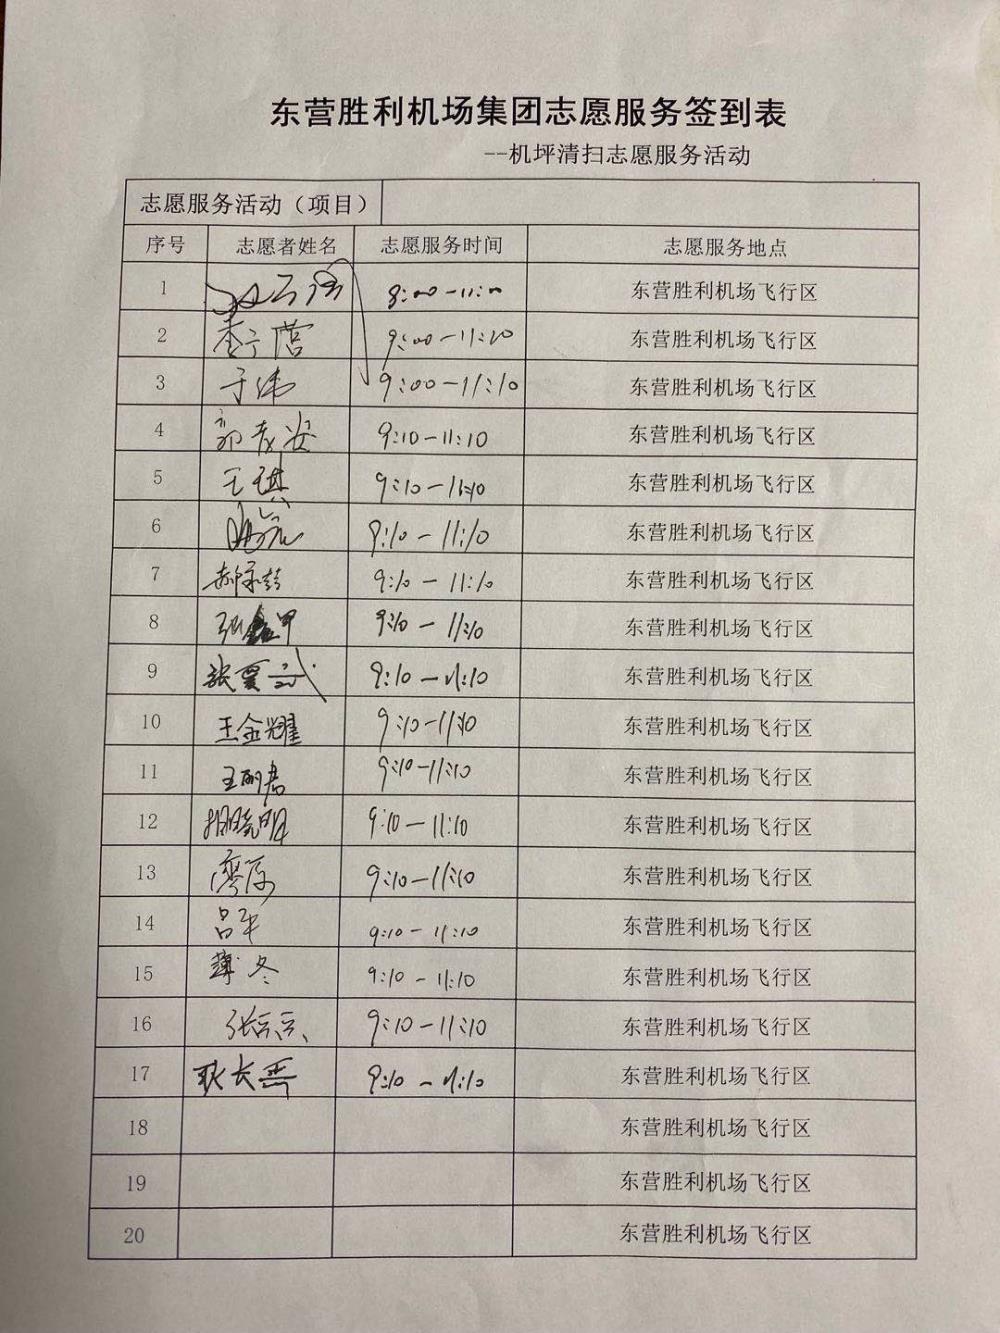 东营胜利机场集团志愿服务签到表
--机坪清扫志愿服务活动
志愿服务活动（项目）
序号 志愿者姓名 志愿服务时间 志愿服务地点
1 8:00-11:00 东营胜利机场飞行区
2 9:00-11:20 东营胜利机场飞行区
3 于伟 9:00-11:10 东营胜利机场飞行区
4 9:10-11:10 东营胜利机场飞行区
5 王琪 9:10-11:10 东营胜利机场飞行区
6 9:10-11:10 东营胜利机场飞行区
7 9:10-11:10 东营胜利机场飞行区
8 张鑫甲 9:10-11:10 东营胜利机场飞行区
9 张贾武 9:10-11:10 东营胜利机场飞行区
10 王金耀 9:10-11:10 东营胜利机场飞行区
11 王丽君 9:10-11:10 东营胜利机场飞行区
12 9:10-11:10 东营胜利机场飞行区
13 9:10-11:10 东营胜利机场飞行区
14 吕平 9:10-11:10 东营胜利机场飞行区
15 薄冬 9:10-11:10 东营胜利机场飞行区
16 9:10-11:10 东营胜利机场飞行区
17 9:10-11:10 东营胜利机场飞行区
18 东营胜利机场飞行区
19 东营胜利机场飞行区
20 东营胜利机场飞行区